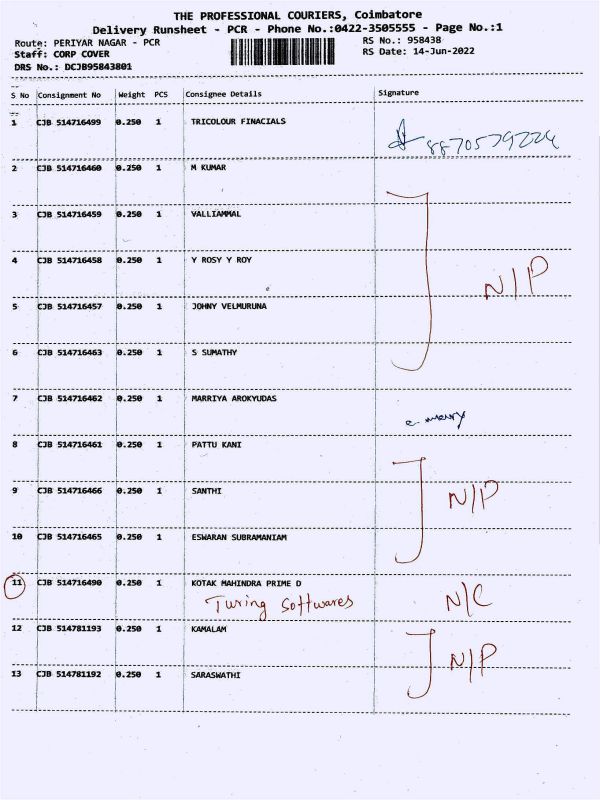 THE PROFESSIONAL COURIERS, Coimbatore
Delivery Runsheet - PCR - Phone No.:0422-3505555 - Page No.:1
Route: PERIYAR NAGAR - PCR RS No.: 958438
Staff: CORP COVER RS Date: 14-Jun-2022
DRS No.: DCJB95843801
S No Consignment No Weight PCS Consignee Details Signature
1 CJB 514716499 0.250 1 TRICOLOUR FINACIALS
2 CJB 514716460 0.250 1 M KUMAR
3 CJB 514716459 0.250 1 VALLIAMMAL
4 CJB 514716458 0.250 1 Y ROSY Y ROY
N/P
5 CJB 514716457 0.250 1 JOHNY VELMURUNA
6 CJB 514716463 0.250 1 S SUMATHY
7 CJB 514716462 0.250 1 MARRIYA AROKYUDAS
8 CJB 514716461 0.250 1 PATTU KANI
9 CJB 514716466 0.250 1 SANTHI N/P
10 CJB 514716465 0.250 1 ESWARAN SUBRAMANIAM
11 CJB 514716490 0.250 1 KOTAK MAHINDRA PRIME D
Turing Softwares N/C
12 CJB 514781193 0.250 1 KAMALAM
N/P
13 CJB 514781192 0.250 1 SARASWATHI